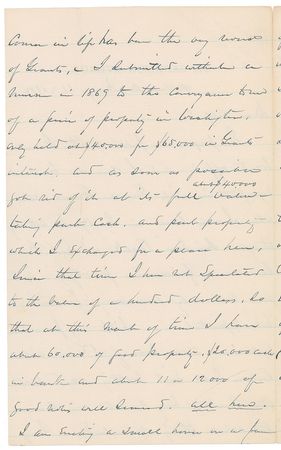 Course in life has been the very reverse
of Grants, & I submitted without a
murmur in 1869 to the Conveyance to me
of a piece of property in Washington,
only held at $40,000 for $65,000 in Grants
interest, and as soon as possible
at $40000
got rid of it at its full value -
taking part Cash, and part property
which I exchanged for a place here,
Since that time I have not Speculated
to the value of a hundred dollars, So
that at this mark of time I have
about 60,000 of good property, $20,000 cash
in bank and about 11 or 12 000 of
good notes well secured. all here.
I am erecting a small house on a fine